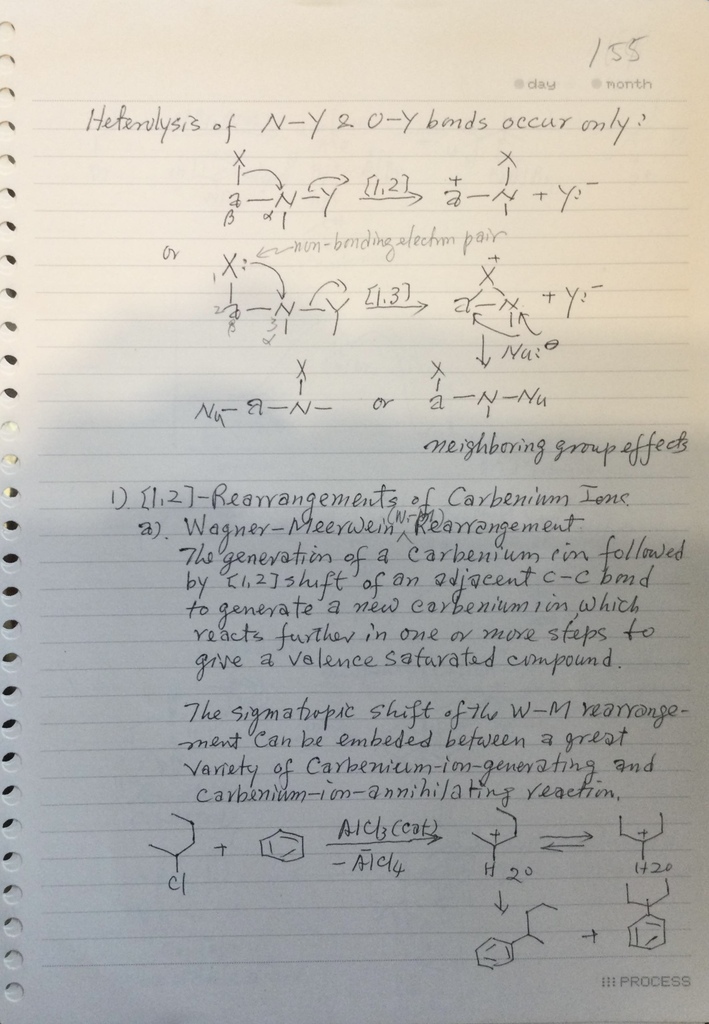 155
day month
Heterolysis of N-Y & O-Y bonds occur only:
X X
a - N - Y [1,2] + a - N - + Y:⁻
β α
or non-bonding electron pair
1 X: X +
2 a - N - Y [1,3] a - N + Y:⁻
β 3 α
Nu:⊖
X X
Nu - a - N - or a - N - Nu
neighboring group effects
1). [1,2]-Rearrangements of Carbenium Ions.
a). Wagner-Meerwein (W-M) Rearrangement
The generation of a Carbenium ion followed
by [1,2] shift of an adjacent C-C bond
to generate a new carbenium ion, which
reacts further in one or more steps to
give a valence saturated compound.
The sigmatropic shift of the W-M rearrange-
ment can be embeded between a great
variety of Carbenium-ion-generating and
carbenium-ion-annihilating reaction.
+ AlCl3 (cat) + +
Cl - AlCl4 H 2° H 2°
+
PROCESS